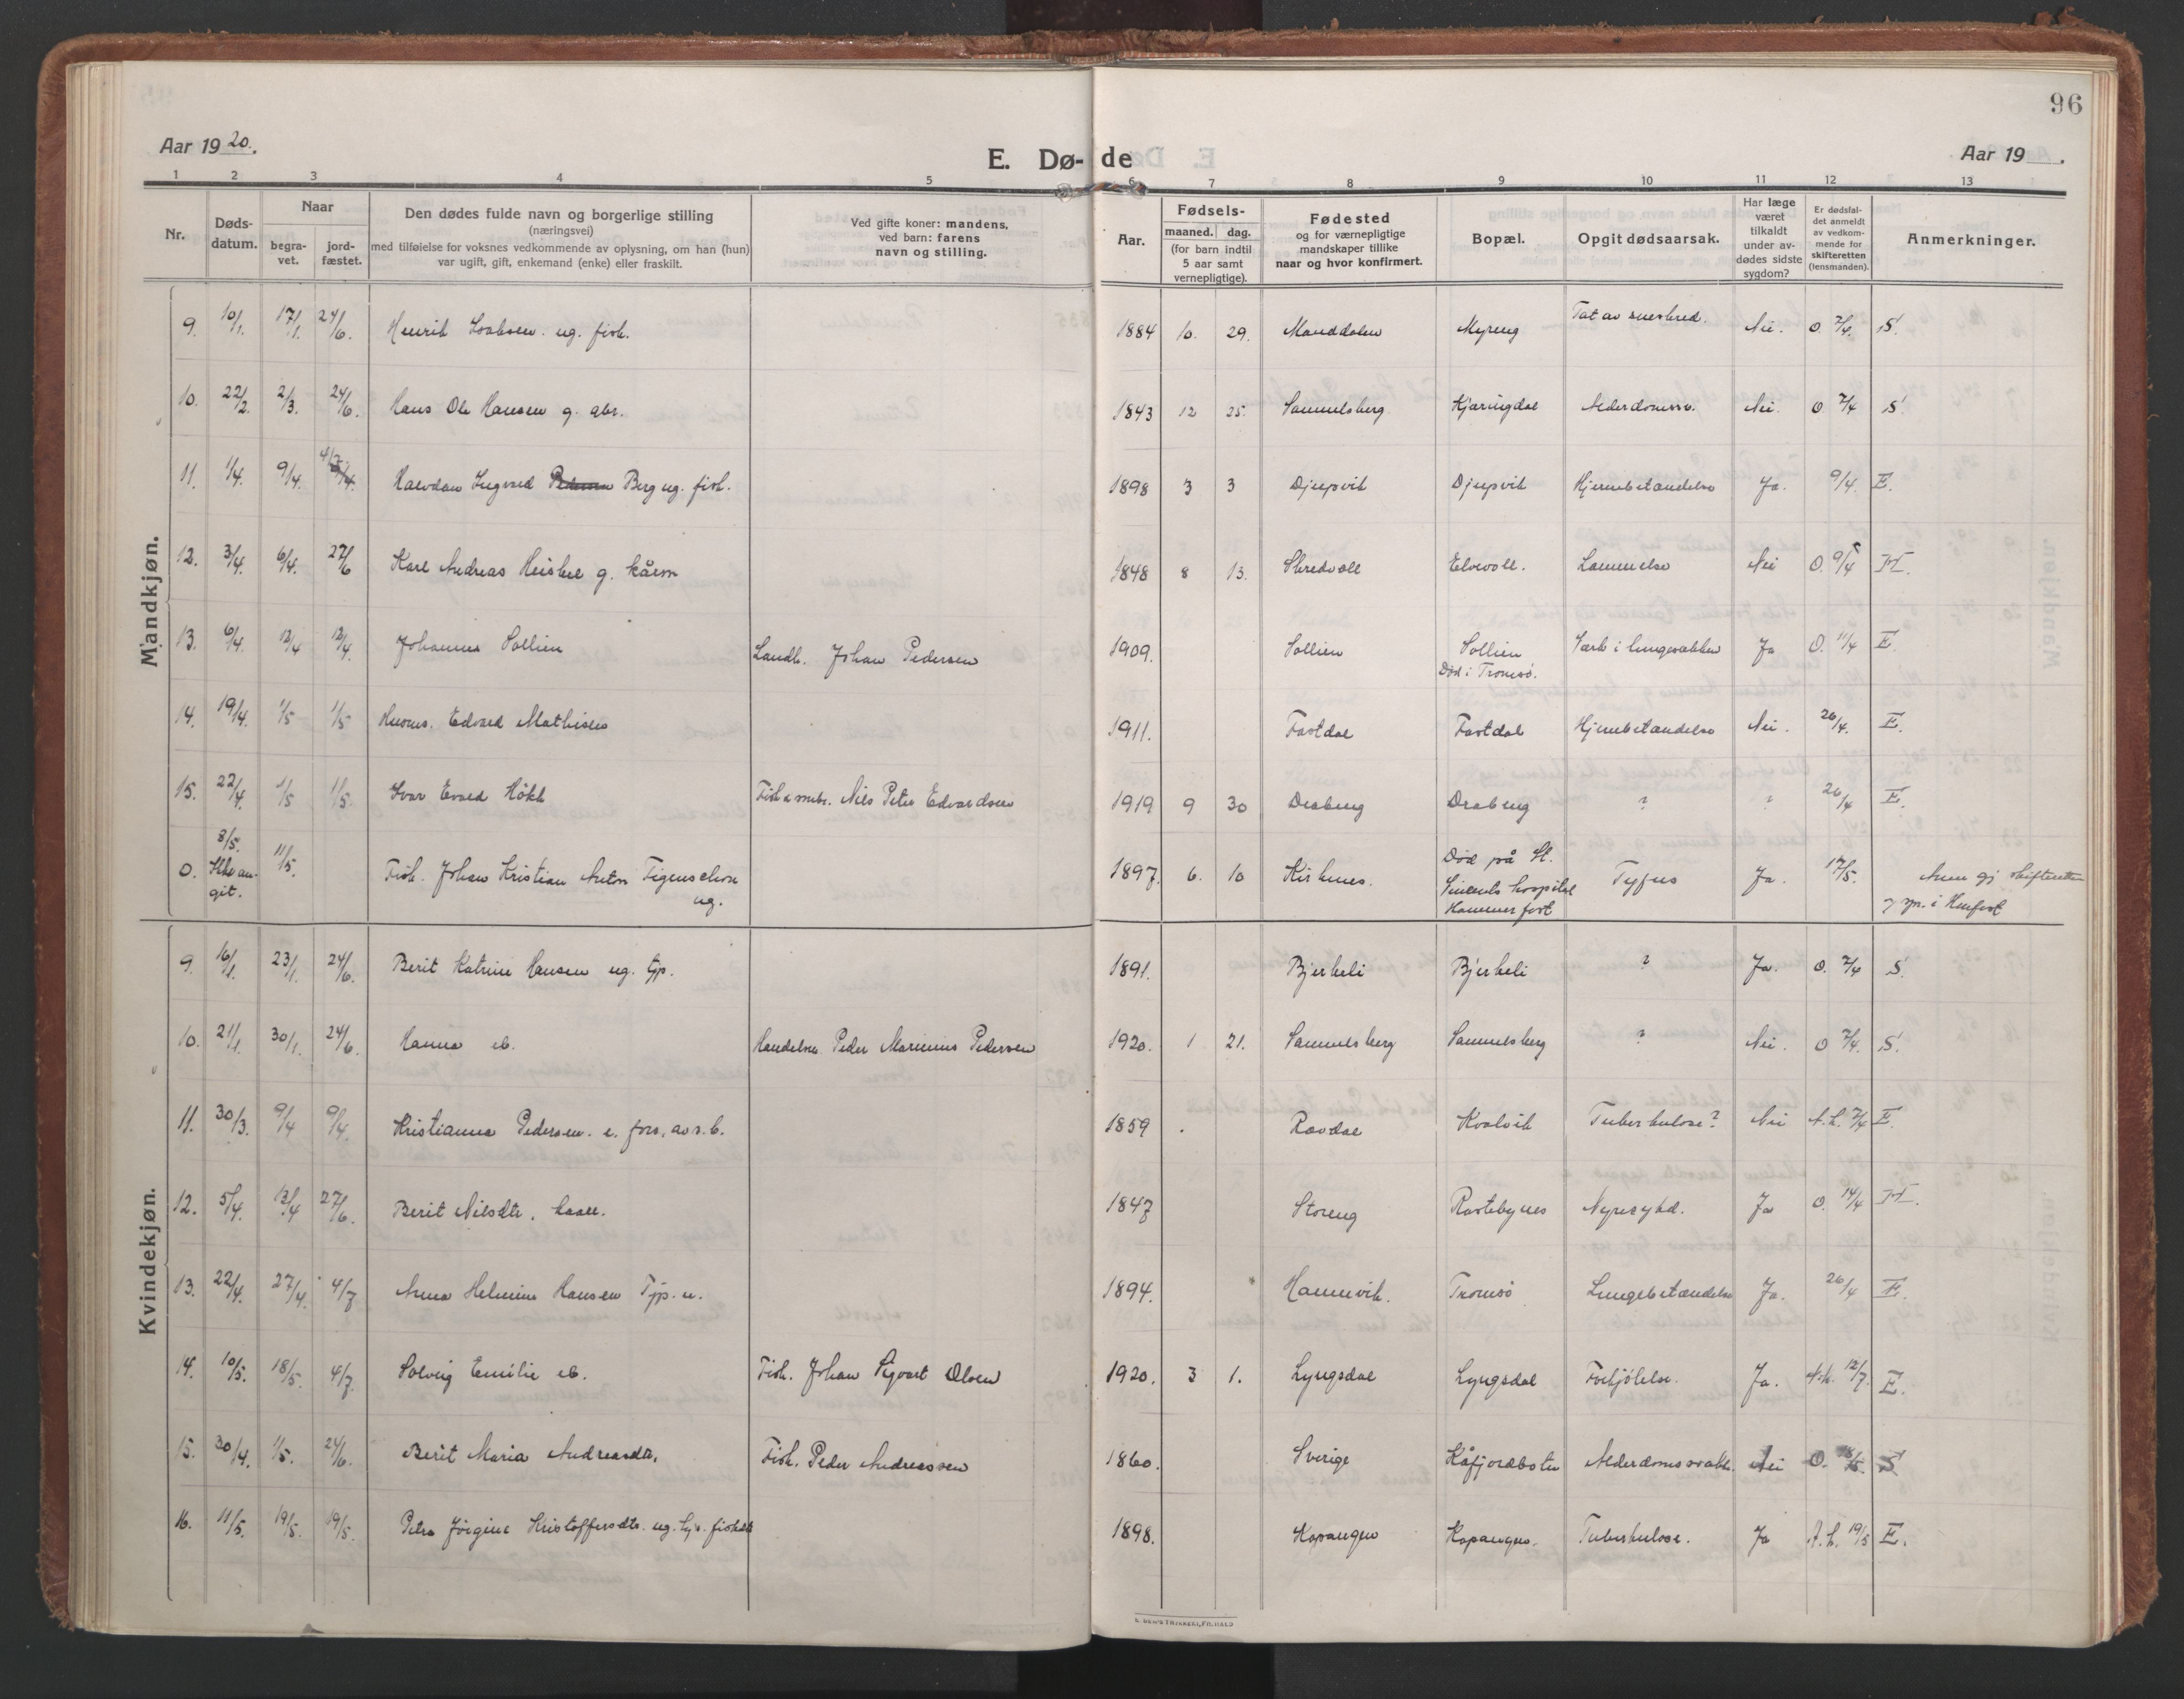 96
Aar 1920.
E. Dø- de
Aar 19 .
1 2 3 4 5 6 7 8 9 10 11 12 13
Nr.
Døds-
datum.
Naar
begra-
vet.
jord-
fæstet.
Den dødes fulde navn og borgerlige stilling
(næringsvei)
med tilføielse for voksnes vedkommende av oplysning, om han (hun)
var ugift, gift, enkemand (enke) eller fraskilt.
Ved gifte koner: mandens,
ved barn: farens
navn og stilling.
Aar.
Fødsels-
maaned. dag.
(for barn indtil
5 aar samt
vernepligtige).
Fødested
og for værnepligtige
mandskaper tillike
naar og hvor konfirmert.
Bopæl.
Opgit dødsaarsak.
Har læge
været
tilkaldt
under av-
dødes sidste
sygdom?
Er dødsfal-
det anmeldt
av vedkom-
mende for
skifteretten
(lensmanden).
Anmerkninger.
Mandkjøn.
9. 10/1. 17/1. 24/6. Henrik ug. fisk. 1884 10. 29. Manddalen Myreng Tat av sneskred. Nei. O 7/4. S.
10. 22/2. 2/3. 24/6. Hans Ole Hansen g. 1843 12 25. Samuelsberg Kjæringdal Nei. O 7/4 S.
11. 1/4. 9/4. 4/7. Halvdan Ingvald Berg ug. fisk. 1898 3 3 Djupvik Djupvik Hjernebetændelse Ja. 9/4. E.
12. 3/4. 6/4. 27/6 Karl Andreas g. 1848 8 13. Skredvoll Elvevoll. Lammelse Nei O. 9/4
13. 6/4. 12/4 12/4. Johannes Sollien Landh. Johan Pedersen 1909. Sollien Sollien Ja O. 11/4 E
Død i Tromsø.
14. 19/4. 1/5 1/5 Edvard Mathisen 1911. Fastdal Fastdal Hjernebetændelse Nei. 26/4. E.
15. 22/4. 1/5 1/5. Ivar Høkk Nils Peter Edvardsen 1919 9 30 Drabeng Drabeng ? ? 26/4 E.
0. 8/5. 11/5. Fisk. Johan Kristian Anton Figenschou 1897. 6. 10 Kirknes. Død på St. Typus Ja. 17/5. skifteretten
git. ug. hospital i
Hammerfest
Kvindekjøn.
9. 16/1. 23/1. 24/6 Berit Katrine Hansen ug. tjp. 1891. Bjerkeli Bjerkeli ? Ja. O. 7/4 S.
10. 21/1. 30/1. 24/6. Hanna Handelsm. Peder Marinius Pedersen 1920. 1 21. Samuelsberg Samuelsberg ? Nei. O 7/4. S.
11. 30/3. 9/4 9/4. Kristianna Pedersen. e. fors. av s. b. 1859 Rovdal Kvalvik Tuberkulose? Nei 7/4 E.
12. 5/4. 13/4 27/6. Berit Nilsdtr. 1847 Storeng Rastebynes Nyresykd. Ja O. 14/4
13. 22/4. 27/4. 4/7 Anna Helmine Hansen Tjp. u. 1894. Hamnvik. Tromsø Lungebetændelse Ja. 26/4 E.
14. 10/5. 18/5. 4/7. Solveig Emilie Fisk. Johan Sigvart Olsen 1920. 3 1. Lyngsdal Lyngsdal Forkjølelse. Ja. 12/7. E.
15. 30/4. 1/5. 24/6. Berit Maria Andreasdtr. Fisk. Peder Andreassen 1860. Sverige Kåfjordbotn Alderdomssvakh. Nei O. S.
16. 11/5. 19/5. 19/5. Petra Jørgine Kristoffersdtr. ug. 1898. Kopangen Kopangen. Tuberkulose. Ja 19/5 E.